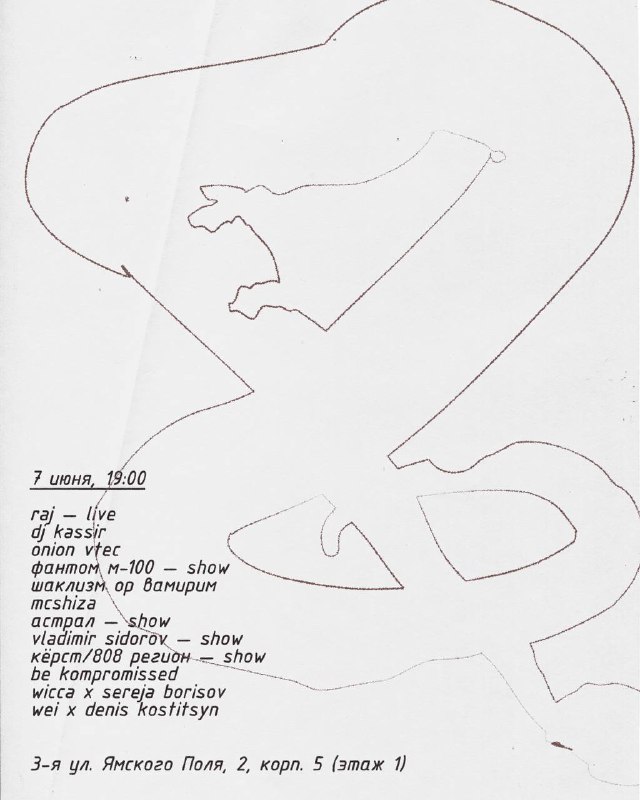 7 июня, 19:00
raj — live
dj kassir
onion vtec
фантом м-100 — show
шаклизм ор вамирим
mcshiza
астрал — show
vladimir sidorov — show
кёрст/808 регион — show
be kompromissed
wicca x sereja borisov
wei x denis kostitsyn
3-я ул. Ямского Поля, 2, корп. 5 (этаж 1)